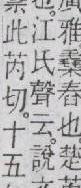 雅舂也楚
也。江氏聲云。說
此芮切。十五